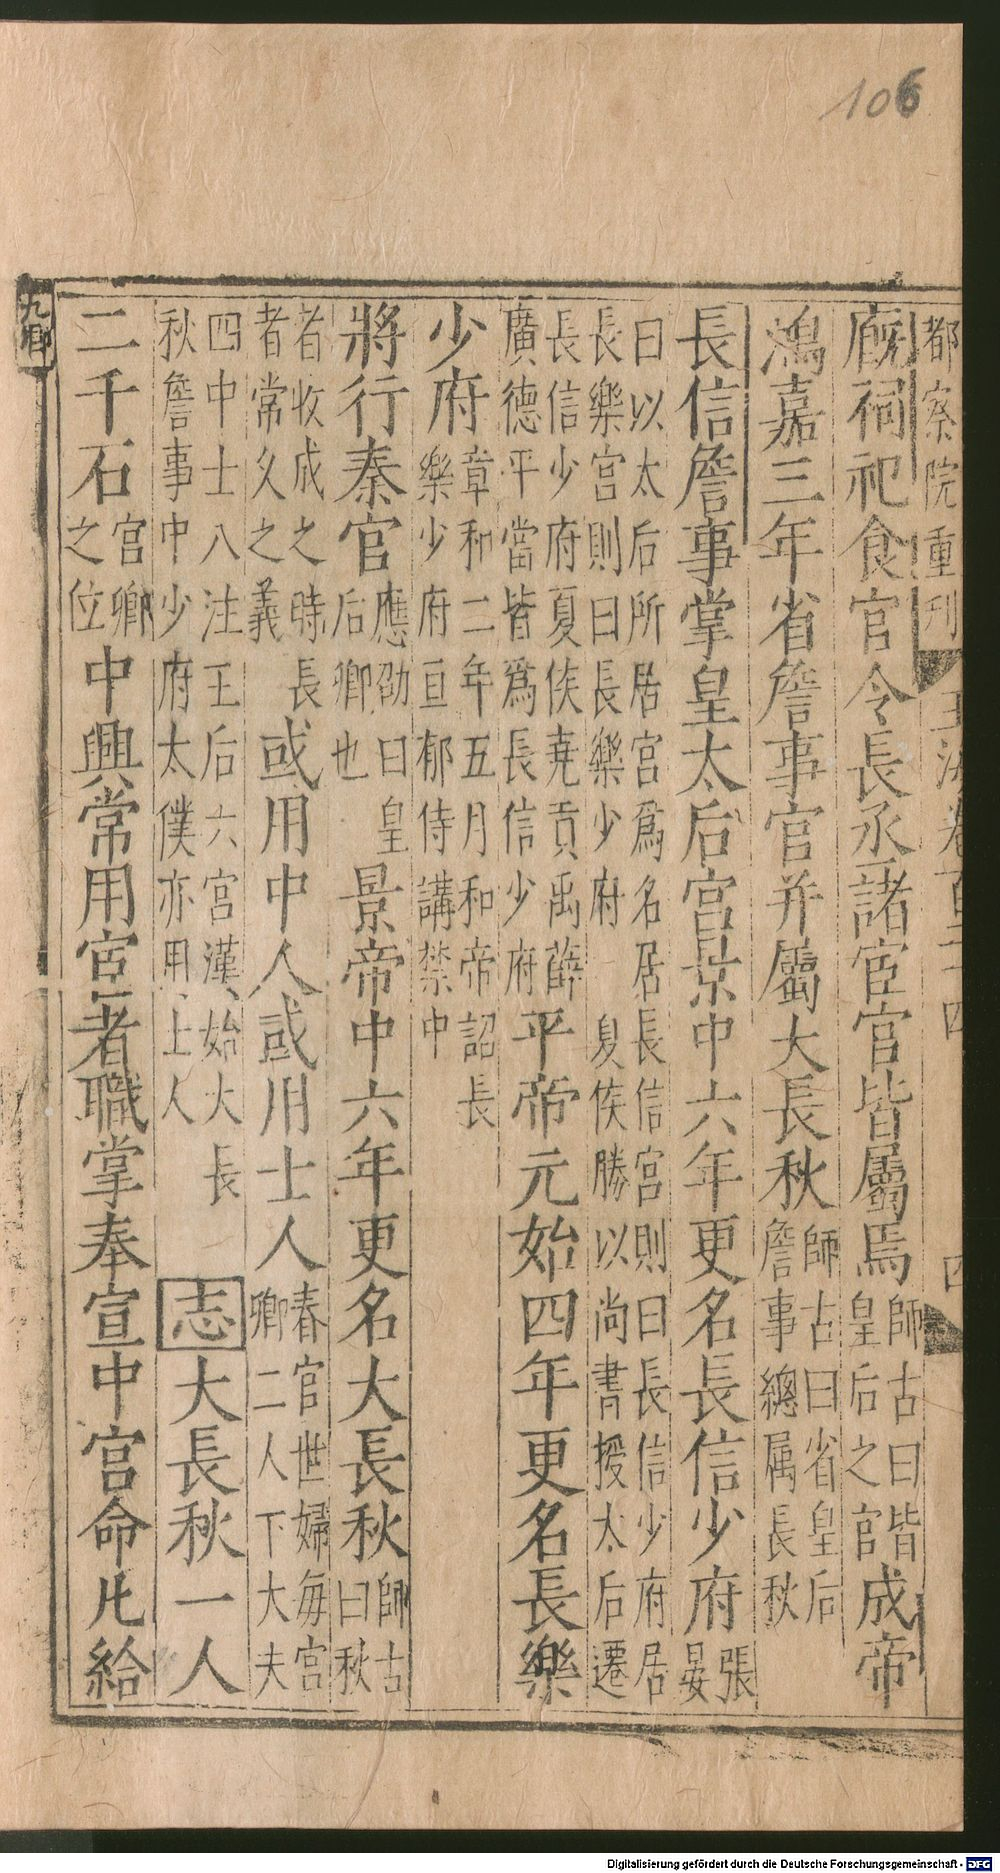 106
都察院重刊 玉海卷百二十四 四
廐祠祀食官令長丞諸宦官皆屬焉師古曰皆皇后之官成帝
鴻嘉三年省詹事官并屬大長秋師古曰省皇后詹事總属長秋
長信詹事掌皇太后宮景中六年更名長信少府張晏
曰以太后所居宮爲名居長信宮則曰長信少府居
長樂宮則曰長樂少府 夏侯勝以尚書授太后遷
長信少府夏侯堯貢禹薛廣德平當皆爲長信少府平帝元始四年更名長樂
少府章和二年五月和帝詔長樂少府亘郁侍講禁中
將行秦官應劭曰皇后卿也景帝中六年更名大長秋師古曰秋
者收成之時長者常久之義或用中人或用士人春官世婦每宮卿二人下大夫
四中士八注王后六宮漢始大長秋詹事中少府太僕亦用士人志大長秋一人
二千石宮卿之位中興常用宦者職掌奉宣中宮命凡給
九卿
Digitalisierung gefördert durch die Deutsche Forschungsgemeinschaft - DFG